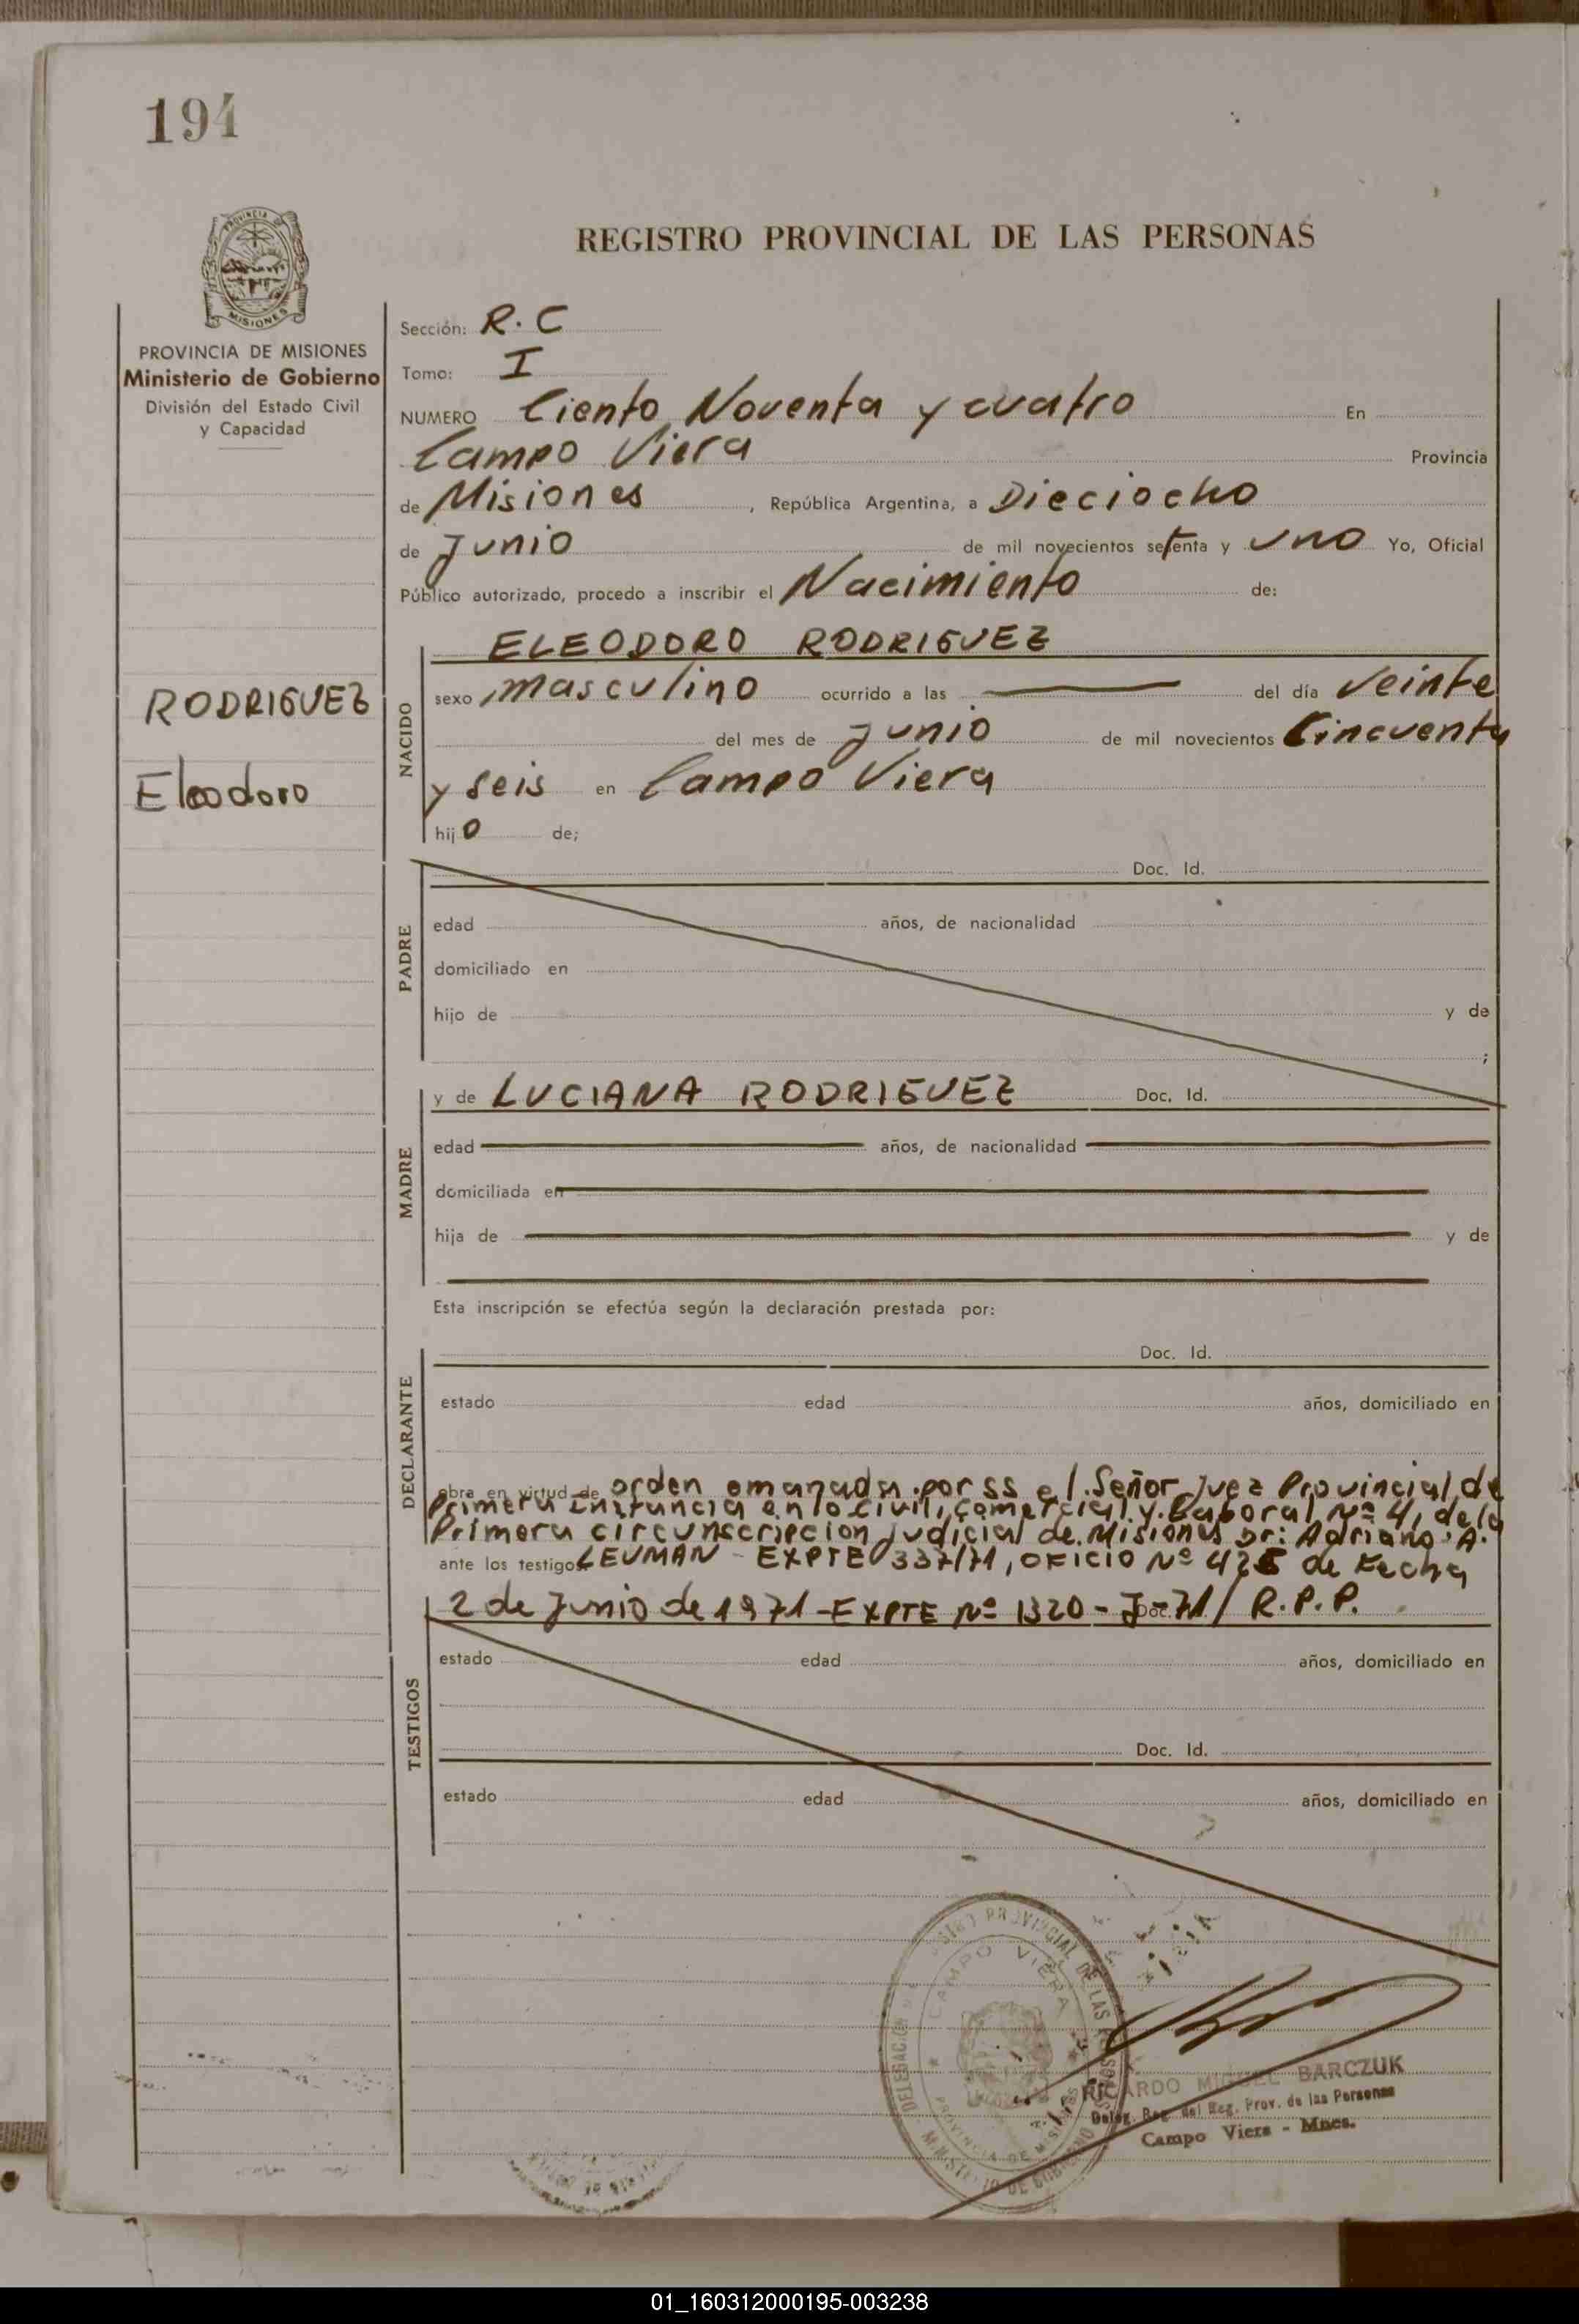 194
REGISTRO PROVINCIAL DE LAS PERSONAS
PROVINCIA DE MISIONES
Ministerio de Gobierno
División del Estado Civil
y Capacidad
RODRIGUEZ
Eleodoro
Sección: R. C
Tomo: I
NUMERO Ciento Noventa y cuatro En
Campo Viera Provincia
de Misiones, República Argentina, a Dieciocho
de Junio de mil novecientos setenta y uno Yo, Oficial
Público autorizado, procedo a inscribir el Nacimiento de:
NACIDO
ELEODORO RODRIGUEZ
sexo masculino ocurrido a las del día Veinte
del mes de Junio de mil novecientos Cincuenta
y seis en Campo Viera
hijo de;
PADRE
Doc. Id.
edad años, de nacionalidad
domiciliado en
hijo de y de
;
MADRE
y de LUCIANA RODRIGUEZ Doc. Id.
edad años, de nacionalidad
domiciliada en
hija de y de
Esta inscripción se efectúa según la declaración prestada por:
DECLARANTE
Doc. Id.
estado edad años, domiciliado en
obra en virtud de orden emanada por SS el Señor Juez Provincial de
Primera Instancia en lo civil, comercial y Laboral Nº 4, de la
Primera circunscripcion judicial de Misiones Dr: Adriano A.
ante los testigos LEUMAN - EXPTE 337/71, OFICIO Nº de Fecha
2 de Junio de 1971 - EXPTE Nº 1320 - J - 71/ R.P.P.
TESTIGOS
estado edad años, domiciliado en
Doc. Id.
estado edad años, domiciliado en
PROVINCIAL DE LAS PERSONAS
CAMPO VIERA
PROVINCIA DE MISIONES
DELEGACION
MINISTERIO DE GOBIERNO
RICARDO MIGUEL BARCZUK
Deleg. Reg. del Reg. Prov. de las Personas
Campo Viera - Mnes.
01_160312000195-003238